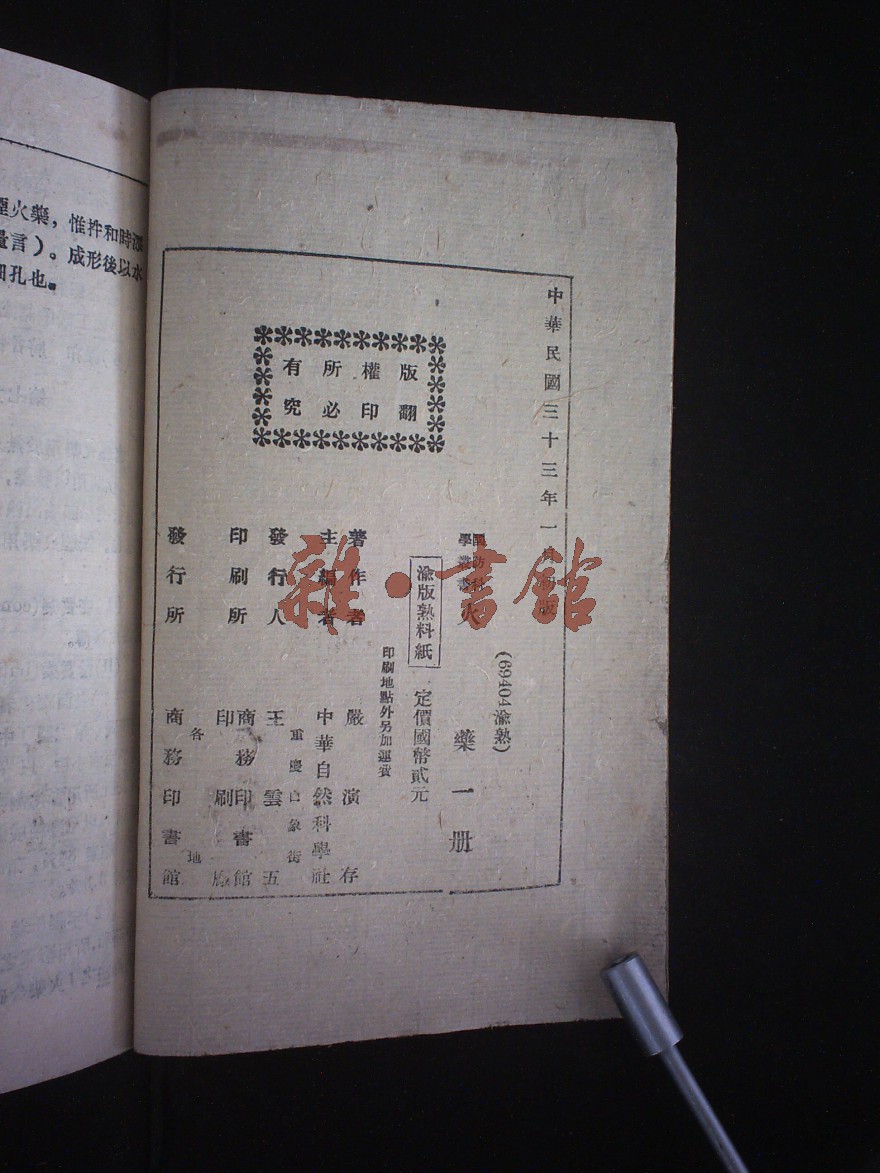 中華民國三十三年一月初版
(69404渝熟)
國防科學叢書 火藥一册
渝版熟料紙
定價國幣貳元
印刷地點外另加運費
版權所有
翻印必究
著作者 嚴演存
主編者 中華自然科學社
重慶白象街
發行人 王雲五
印刷所 商務印書館印刷廠
各地
發行所 商務印書館
雜·書館
煙火藥,惟拌和時
量言)。成形後以水
細孔也。